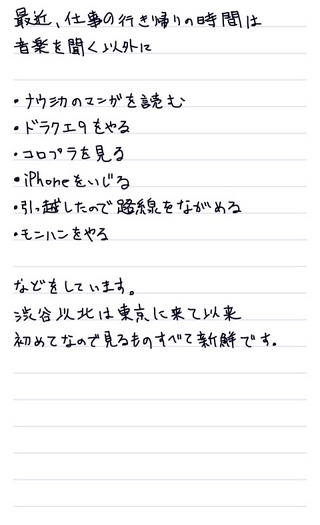 最近、仕事の行き帰りの時間は
音楽を聞く以外に
・ナウシカのマンガを読む
・ドラクエ9をやる
・コロプラを見る
・iPhoneをいじる
・引っ越したので路線をながめる
・モンハンをやる
などをしています。
渋谷以北は東京に来て以来
初めてなので見るものすべて新鮮です。